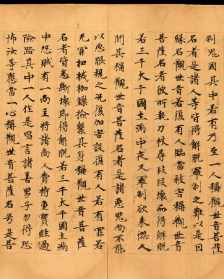 剎鬼國其中若有乃至一人稱觀世音菩薩
名者是諸人等皆得解脫羅剎之難以是因
緣名觀世音若復有人臨當被害稱觀世音
菩薩名者彼所執刀杖尋段段壞而得解脫
若三千大千國土滿中夜叉羅剎欲來惱人
聞其稱觀世音菩薩名者是諸惡鬼尚不能
以惡眼視之況復加害設復有人若有罪若
无罪杻械枷鎖檢繫其身稱觀世音菩薩
名者皆悉斷壞即得解脫若三千大千國土滿
中怨賊有一商主將諸商人齎持重寶經過
險路其中一人作是唱言諸善男子勿得恐
怖汝等應當一心稱觀世音菩薩名号是菩